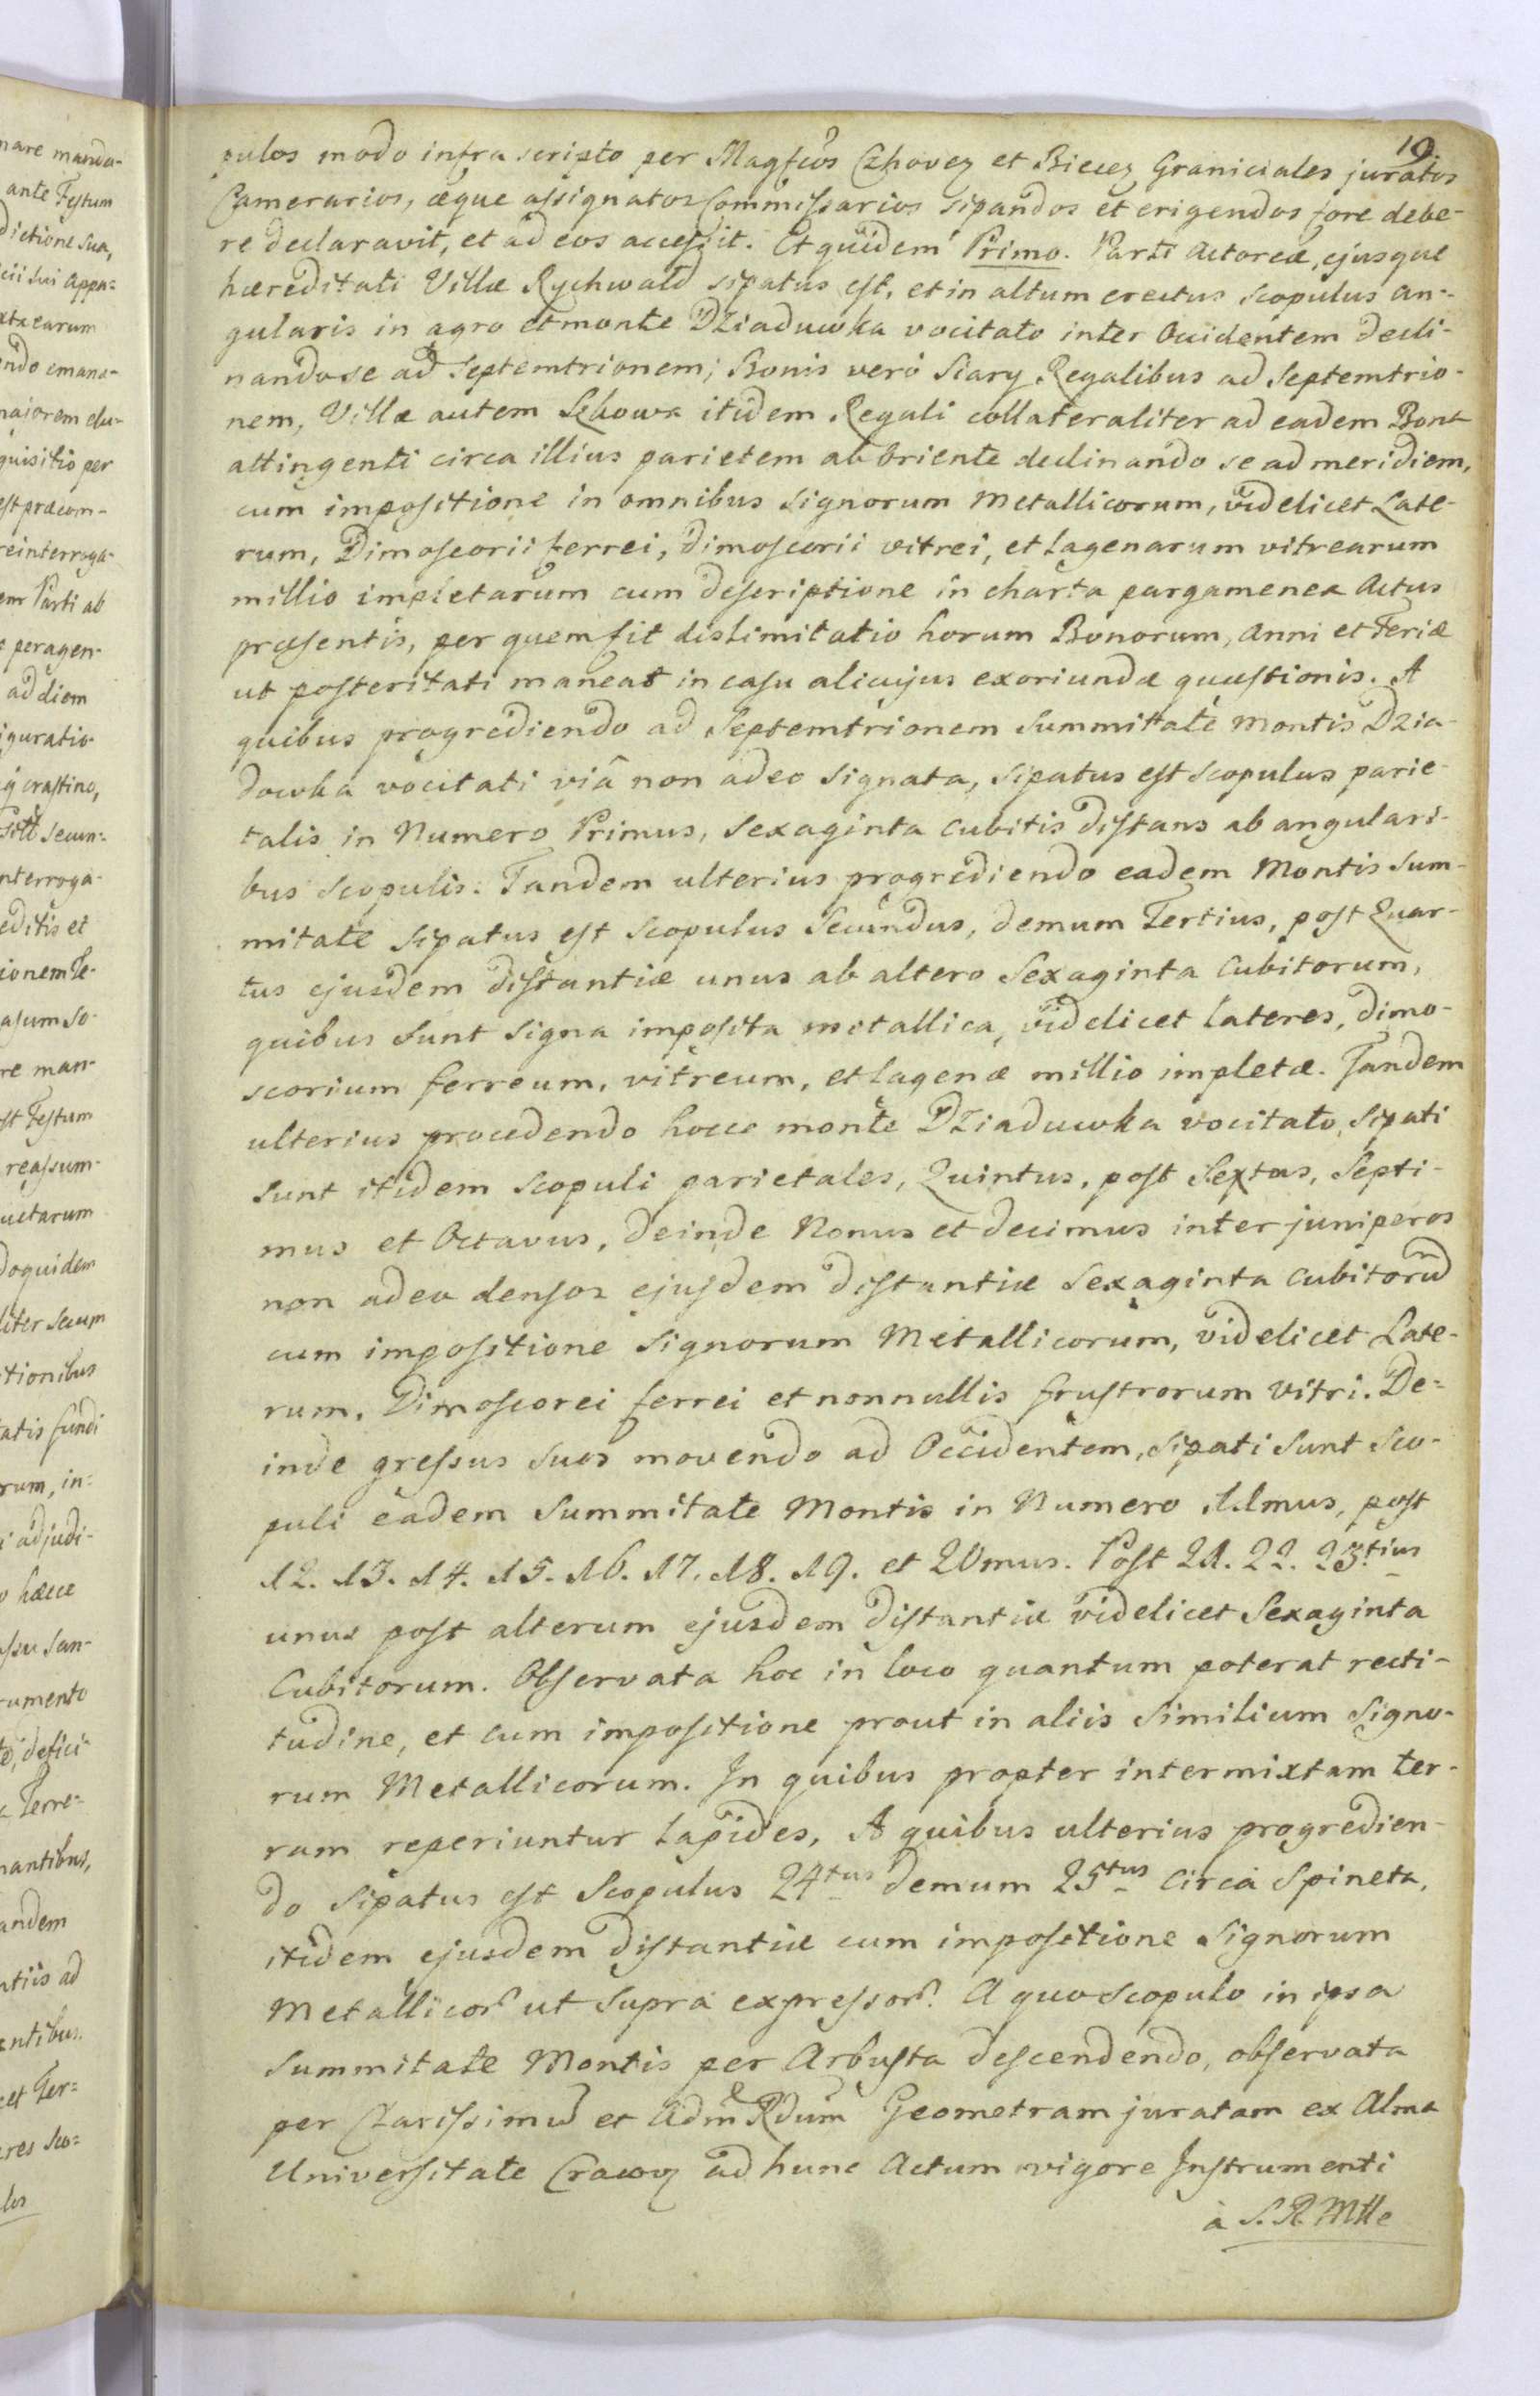 19
pulos modo infra scripto per Magfcos Czhovey et Biecey Graniciales juratos
Camerarios, æque assignatos Commissarios sipandos et erigendos fore debe-
re declaravit, et ad eos accessit. Et quidem Primo. Parti Actoreæ, ejusque
hæreditati Villæ Rychwald sipatus est, et in altum erectus scopulus an-
gularis in agro et monte Dziaduwka vocitato inter Occidentem decli-
nando se ad Septemtrionem; Bonis verò Siary Regalibus ad Septemtrio-
nem, Villæ autem Sękowa itidem Regali collateraliter ad eadem Bona
attingenti circa illius parietem ab Oriente declinando se ad meridiem,
cum impositione in omnibus Signorum Metallicorum, videlicet Late-
rum, Dimoscorii ferrei, dimoscorii vitrei, et lagenarum vitrearum
millio impletarum cum descriptione in charta pargamenea Actus
præsentis, per quem fit dislimitatio horum Bonorum, Anni et Feriæ
ut posteritati maneat in casu alicujus exoriundæ quæstionis. A
quibus progrediendo ad Septemtrionem Summitate Montis Dzia-
dowka vocitati viâ non adeo signata, sipatus est Scopulus parie-
talis in Numero Primus, Sexaginta Cubitis distans ab angulari-
bus Scopulis. Tandem ulterius progrediendo eadem Montis Sum-
mitate sipatus est Scopulus Secundus, demum Tertius, post Quar-
tus ejusdem distantiæ unus ab altero Sexaginta Cubitorum,
quibus Sunt Signa imposita metallica, videlicet lateres, dimo-
scorium ferreum, vitreum, et lagenæ millio impletæ. Tandem
ulterius procedendo hocce monte Dziaduwka vocitato, sipati
Sunt itidem Scopuli parietales, Quintus, post Sextus, Septi-
mus et Octavus, deinde Nonus et decimus inter juniperos
non adeo densos ejusdem distantiæ Sexaginta Cubitorũ
cum impositione Signorum Metallicorum, videlicet Late-
rum, Dimoscorei ferrei et nonnullis frustrorum Vitri. De-
inde gressus suos movendo ad Occidentem, sipati Sunt Sco-
puli eadem Summitate Montis in Numero 11mus, post
12. 13. 14. 15. 16. 17. 18. 19. et 20mus. Post 21. 22. 23tius
unus post alterum ejusdem distantiæ videlicet Sexaginta
Cubitorum. Observata hoc in loco quantum poterat recti-
tudine, et cum impositione prout in aliis Similium Signo-
rum Metallicorum. In quibus propter intermixtam ter-
ram reperiuntur lapides, A quibus ulterius progredien-
do sipatus est Scopulus 24tus demum 25tus circa Spineta,
itidem ejusdem distantiæ cum impositione Signorum
Metallicor. ut Supra expressor. A quo Scopulo in ipsa
Summitate Montis per Arbusta descendendo, observata
per Clarissimũ et Adm Rdum Geometram juratam ex Alma
Universitate Cracov ad hunc Actum vigore Instrumenti
à S. R. Mtte
nare manda-
ante Festum
dictione sua,
icii sui Appa-
xta earum
endo emana-
maiorem elu-
quisitio per
est præcom-
reinterroga-
em Parti ab
e peragen-
ad diem
iguratio
q crastino,
Titt secun-
nterroga-
editis et
ionem Te-
asum so-
re man-
st Festum
reassum-
uctarum
doquidem
liter Secum
tionibus
tatis fundi
rum, in-
i adjudi-
o hæcce
ssu San-
rumento
te, defici-
a Terre-
nantibus,
andem
ntiis ad
entibus.
cet Ter-
eres Sco-
los